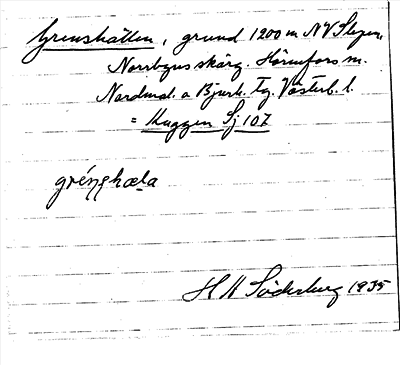 Grenshällen, grund 1200 m NV Slegen,
Norrbynsskärg. Hörnefors sn.
Nordmal. o Bjurh. tg. Västerb. l.
= Kuggen Sj 107
H W Söderberg 1935